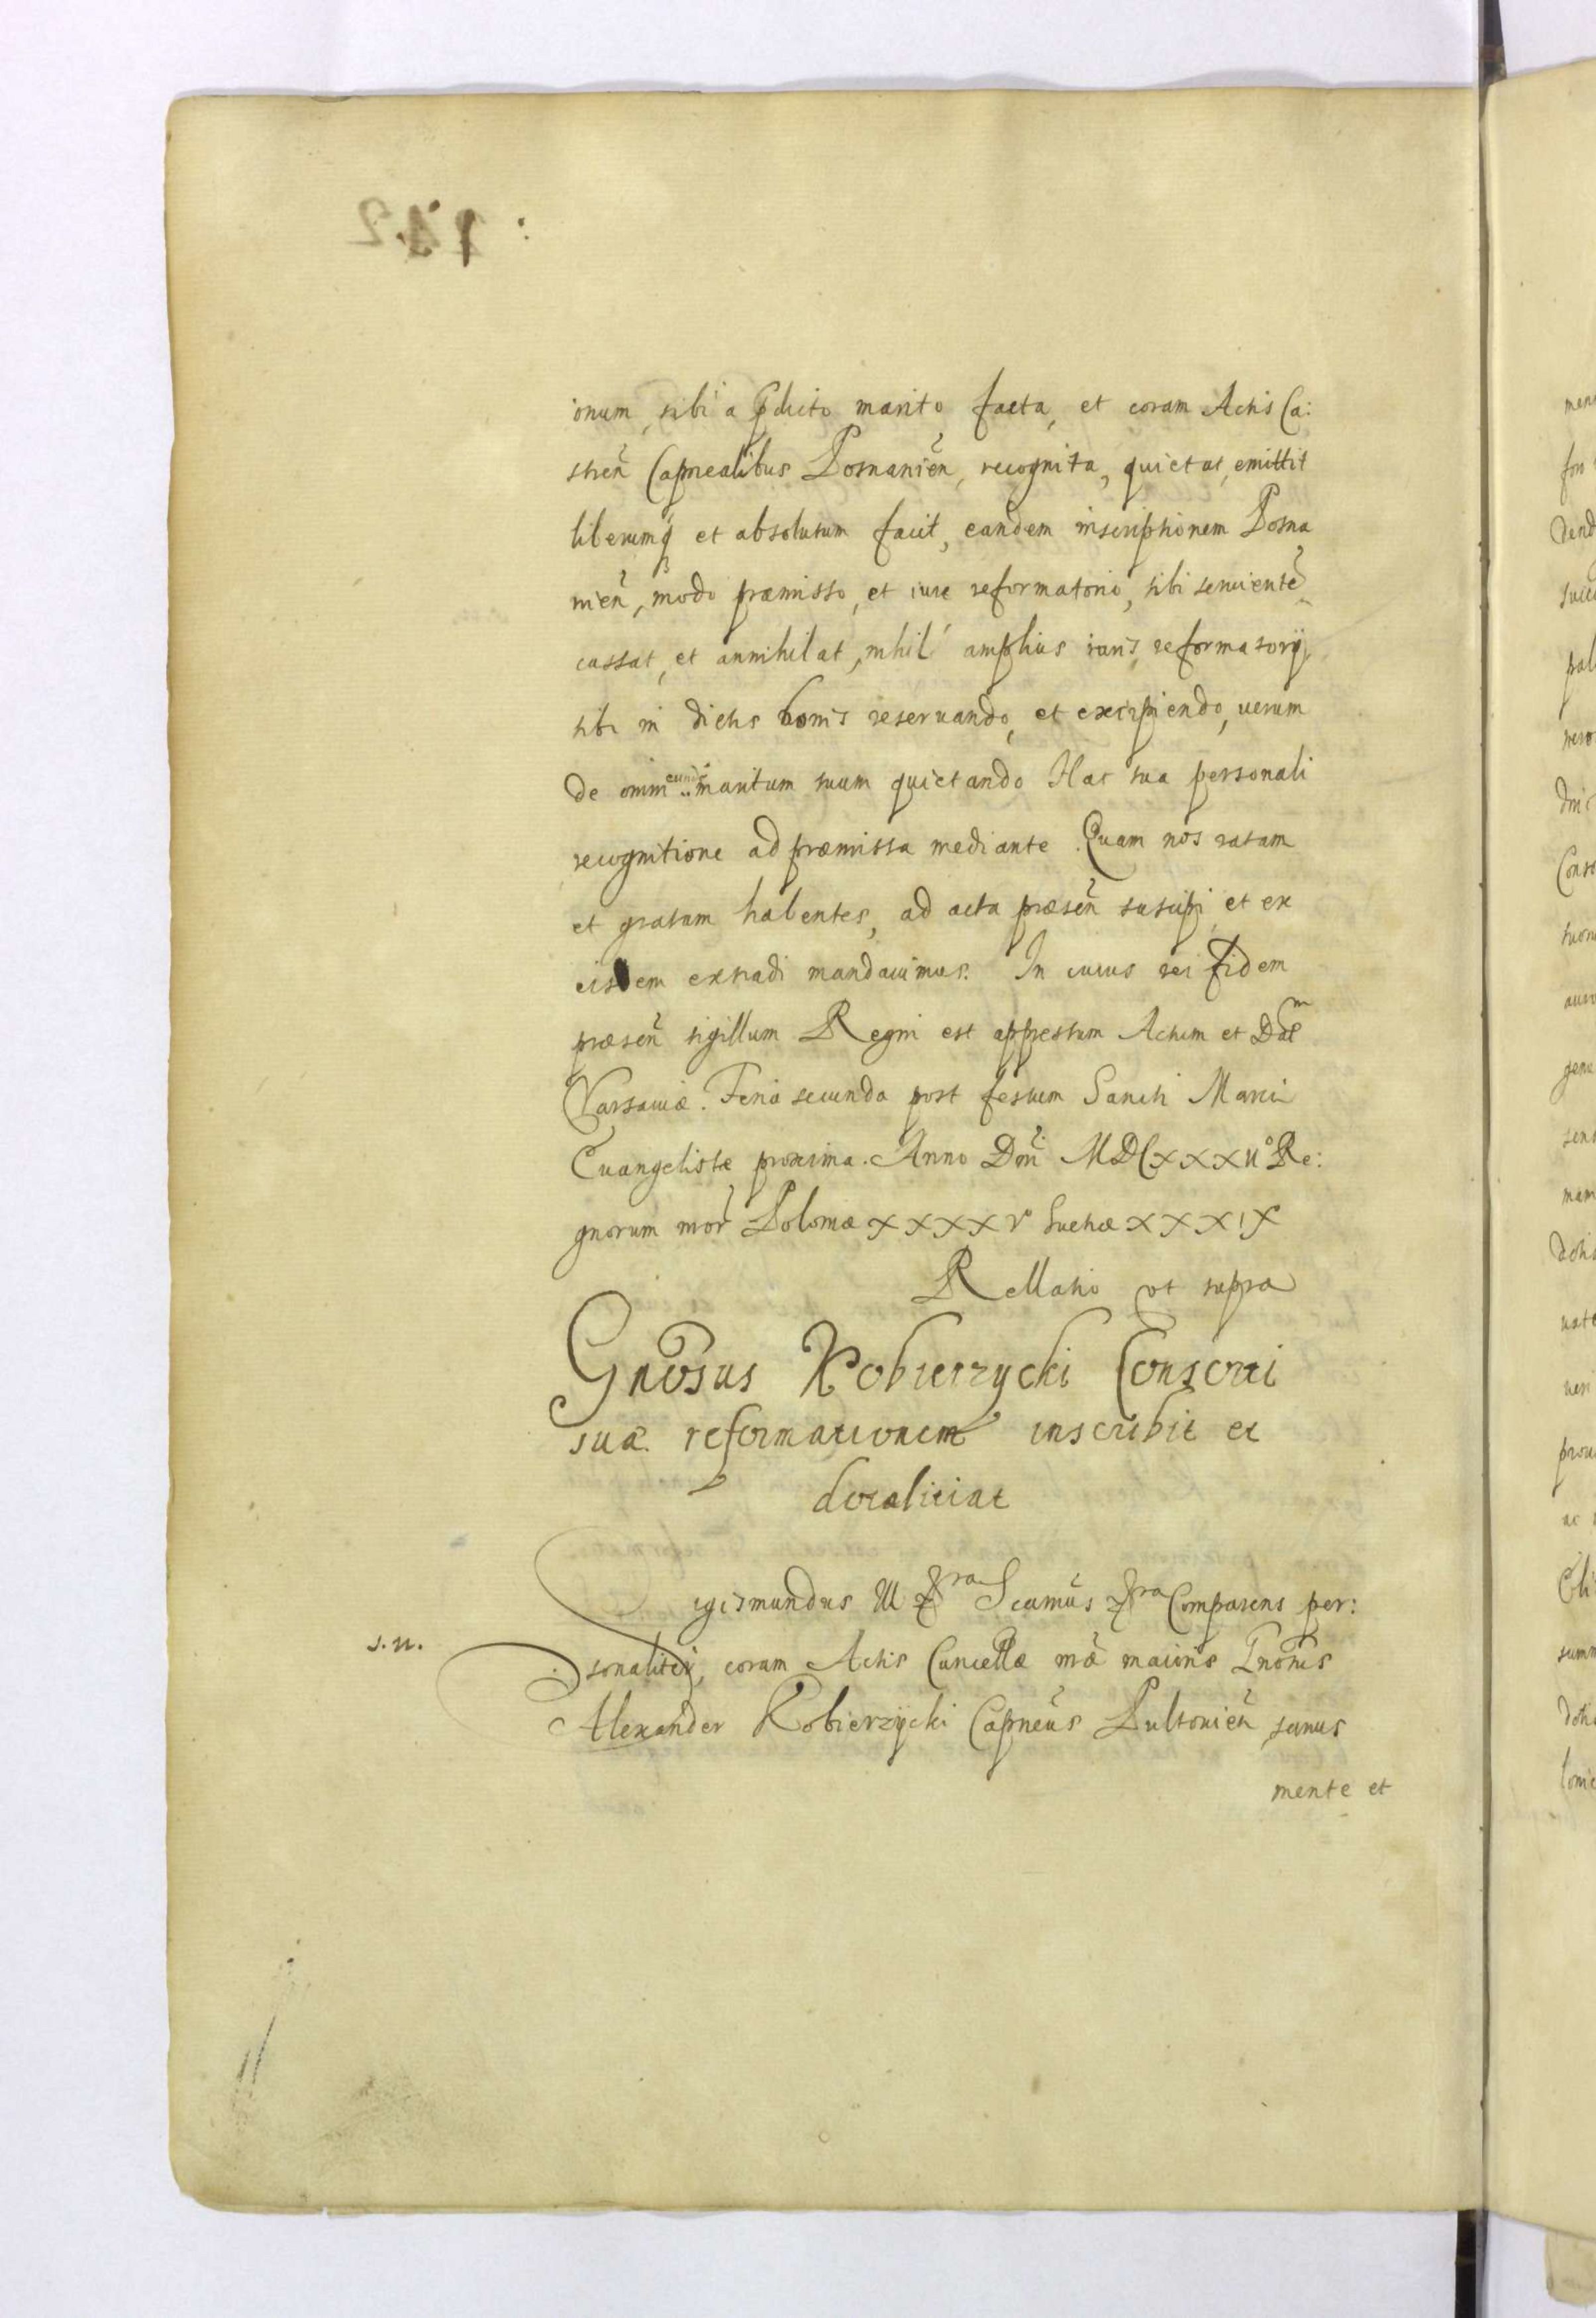 ionum, sibi a p̃dicto marito facta, et coram Actis Ca:
stren̄ Capnealibus Posnanien̄, recognita, quietat, emittit
liberumq́ et absolutum facit, eandem inscriptionem Posna
nien̄, modo præmisso, et iure reformatorio, sibi seruientē
cassat, et annihilat, nihil amplius iuris reformatorÿ
sibi in dictis bonis reseruando, et excipiendo, uerum
de omni eundē maritum suum quietando Hac sua personali
recognitione ad præmissa mediante. Quam nos ratam
et gratam habentes, ad acta præsen̄ suscipi, et ex
eisdem extradi mandauimus. In cuius rei fidem
præsen̄ sigillum Regni est appressum Actum et Datm
Varsauiæ. Feria secunda post festum Sancti Marci
Euangelistæ proxima. Anno Dnī MDCXXXII° Re:
gnorum nrōr Poloniæ XXXXV Suetiæ XXXIX
Rellatio vt supra
Gnōsus Kobierzycki Consorti
suæ reformationem inscribit et
dotalitiat
Sigismundus III &ra Scamūs &ra Comparens per:
s.n.
sonaliter, coram Actis Cancellæ nræ maioris Gnōsus
Alexander Kobierzÿcki Capneūs Pultouien̄, sanus
mente et